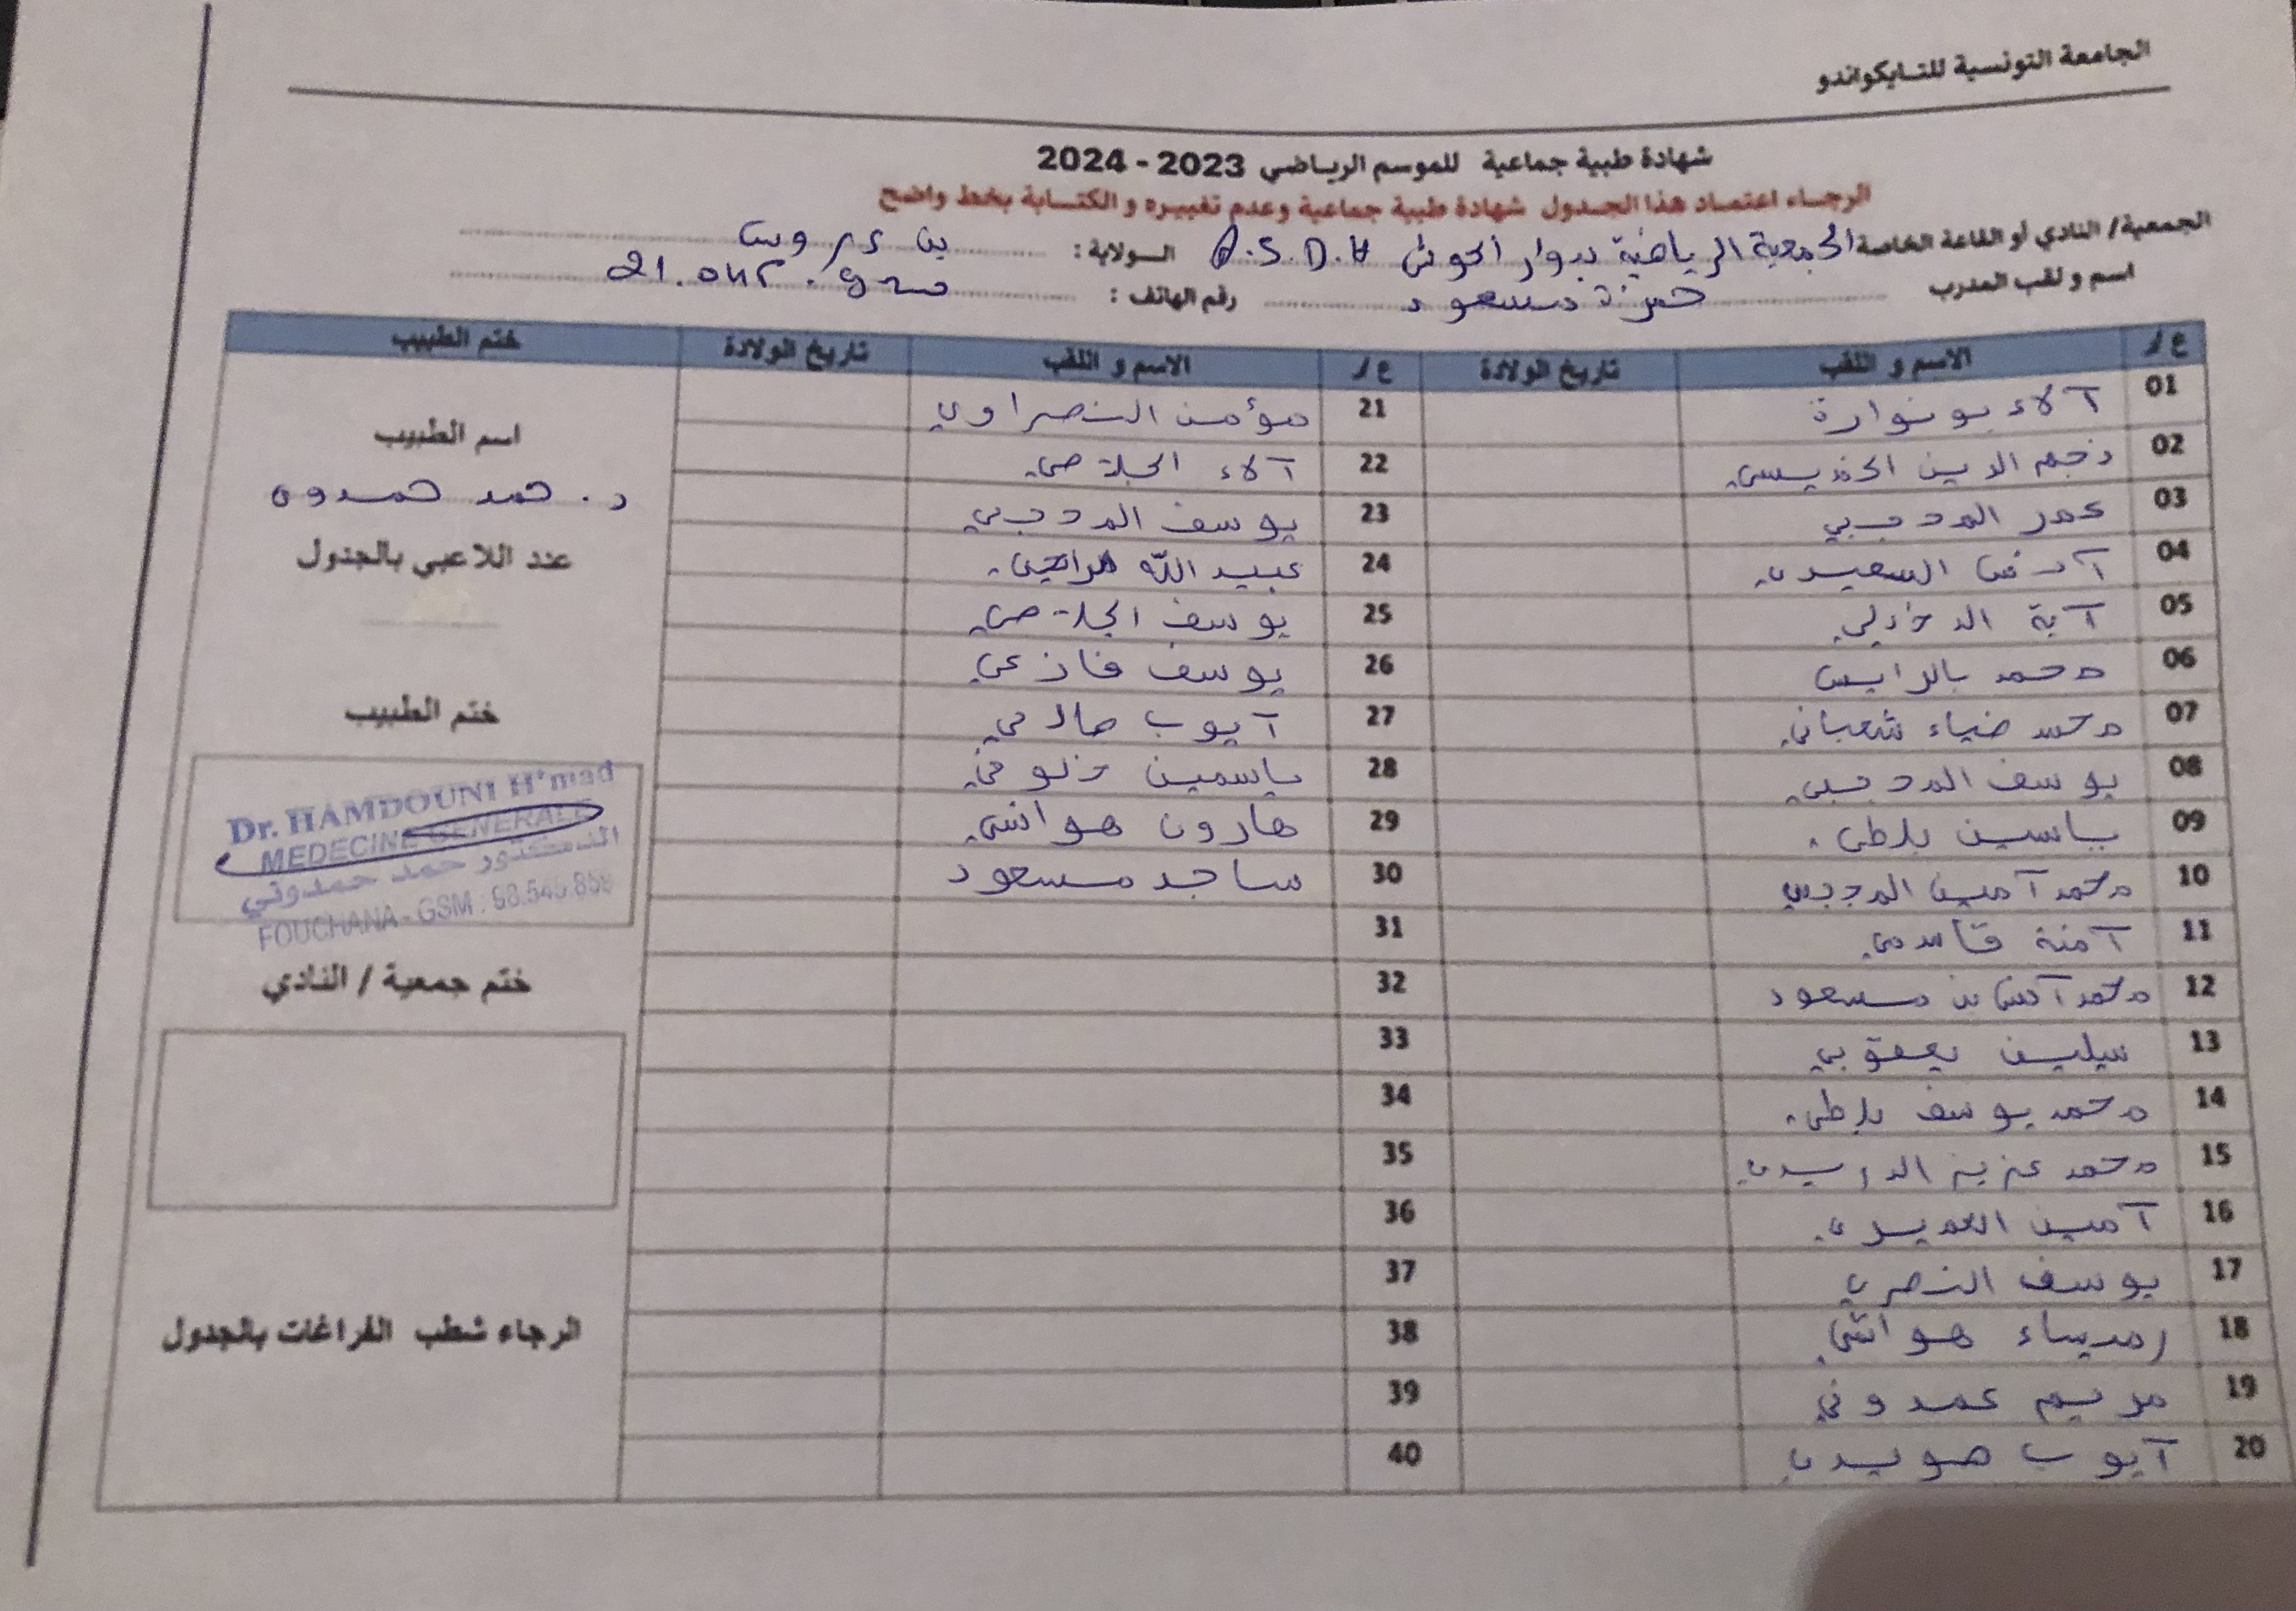 الجامعة التونسية للتايكواندو
شهادة طبية جماعية للموسم الرياضي 2023 - 2024
الرجاء اعتماد هذا الجدول شهادة طبية جماعية وعدم تغييره و الكتابة بخط واضح
الجمعية/ النادي أو القاعة الخاصة الجمعية الرياضية بدوار الحوش A.S.D.H الولاية : بن عروس
اسم و لقب المدرب حمزة مسعود رقم الهاتف : 21.
ع/ر الاسم و اللقب تاريخ الولادة ع/ر الاسم و اللقب تاريخ الولادة ختم الطبيب
01 آلاء بونوارة 21 مؤمن النصراوي
اسم الطبيب
02 نجم الدين الخميسي 22 آلاء الجلاصي
د. حمد حمدوني
03 عمر المدبي 23 يوسف المدبي
04 السعيدي 24 عبيد الله
عند اللاعبي بالجدول
05 آية 25 يوسف الجلاصي
06 محمد بالرايس 26 يوسف
ختم الطبيب
07 محمد ضياء شعباني 27 آيوب صالحي
08 يوسف 28 ياسمين
Dr. HAMDOUNI H'mad
MEDECINE GENERALE
الدكتور حمد حمدوني
FOUCHANA - GSM : 98.545.858
09 ياسين بلطي 29 هارون هواشي
10 محمد آمين 30 ساجد مسعود
11 آمنة قاسمي 31
ختم جمعية / النادي
12 محمد بن مسعود 32
13 سيلين يعقوبي 33
14 محمد يوسف بلطي 34
15 محمد عزيز 35
16 آمين 36
17 يوسف النصري 37
الرجاء شطب الفراغات بالجدول
18 رميساء هواشي 38
19 مريم عمدوني 39
20 آيوب هويدي 40